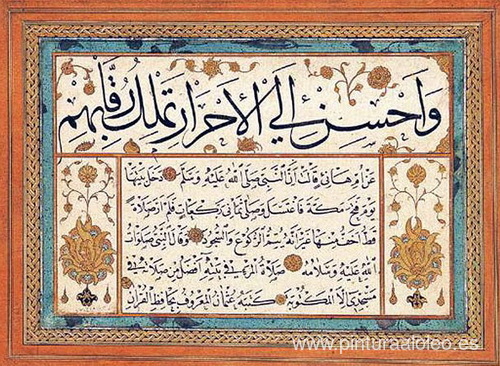 وَاَحْسِنْ اِلَى الْاَحْرَارِ تَمْلِكْ رِقَابَهُمْ
عَنْ اُمِّ هَانِئٍ قَالَتْ اَنَّ النَّبِيَّ صَلَّى اللّٰهُ عَلَيْهِ وَسَلَّمَ دَخَلَ بَيْتَهَا
يَوْمَ فَتْحِ مَكَّةَ فَاغْتَسَلَ وَصَلَّى ثَمَانِيَ رَكَعَاتٍ فَلَمْ اَرَ صَلَاةً
قَطُّ اَخَفَّ مِنْهَا غَيْرَ اَنَّهُ يُتِمُّ الرُّكُوعَ وَالسُّجُودَ وَقَالَ النَّبِيُّ صَلَوَاتُ
اللّٰهِ عَلَيْهِ وَسَلَامُهُ صَلَاةُ الْمَرْءِ فِي بَيْتِهِ اَفْضَلُ مِنْ صَلَاتِهِ فِي
مَسْجِدِي هٰذَا اِلَّا الْمَكْتُوبَةَ كَتَبَهُ عُثْمَانُ الْمَعْرُوفُ بِحَافِظِ الْقُرْاٰنِ
www.pinturaaloleo.es